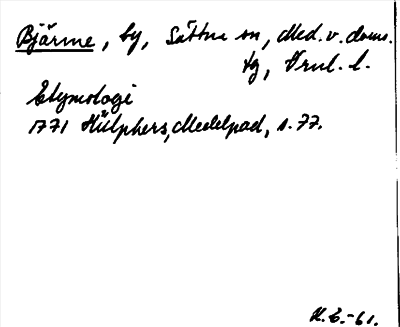 Bjärme, by, Sättna sn, Med. v. doms.
tg, Vrnl. l.
Etymologi
1771 Hülphers, Medelpad, s. 77.
H.C.-61.